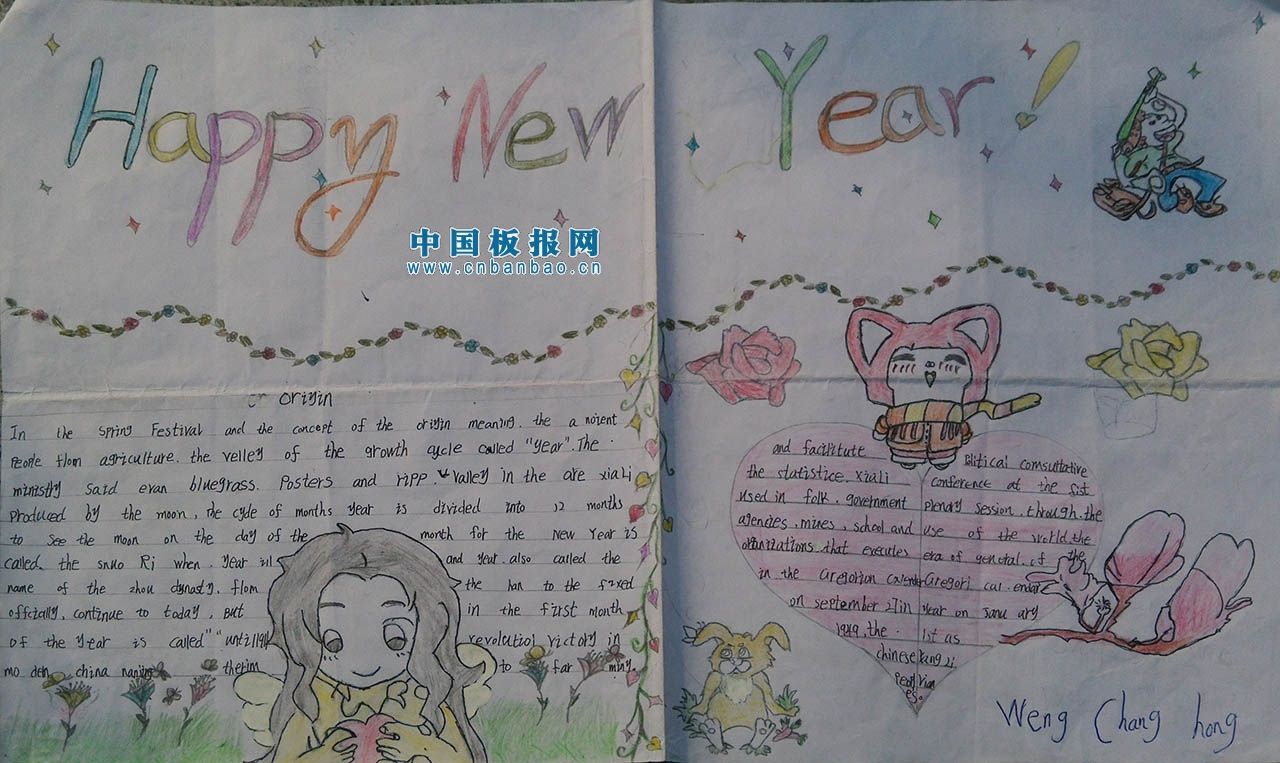 Happy New Year!
中国板报网
www.cnbanbao.cn
origin
In the Spring Festival and the concept of the origin meaning. the a noient
People flom agriculture. the velley of the growth cycle called "Year". The
ministry said evan bluegrass. Posters and ripp valley in the are xiali
Produced by the moon, the cycle of months Year is divided into 12 months
to see the moon on the day of the month for the New Year is
called the Ri when. Year and year also called the
name of the zhou dynasty. flom the han to the fixed
offcially, continue to today, But in the first month
of the Year is called "" revolutiol victory in
mo den china to far
and facilitute
the statistice. xiali
used in folk. government
agencies, mines, school and
that executes
in the Gregorian calender
on september 27 in
1949, the
chinese
Political comsultative
conference at the fist
plendy session, through, the
use of the world, the
era of genetal. of the
Gregori cal-endar
Year on Janu ary
1st as
Weng Chang hong